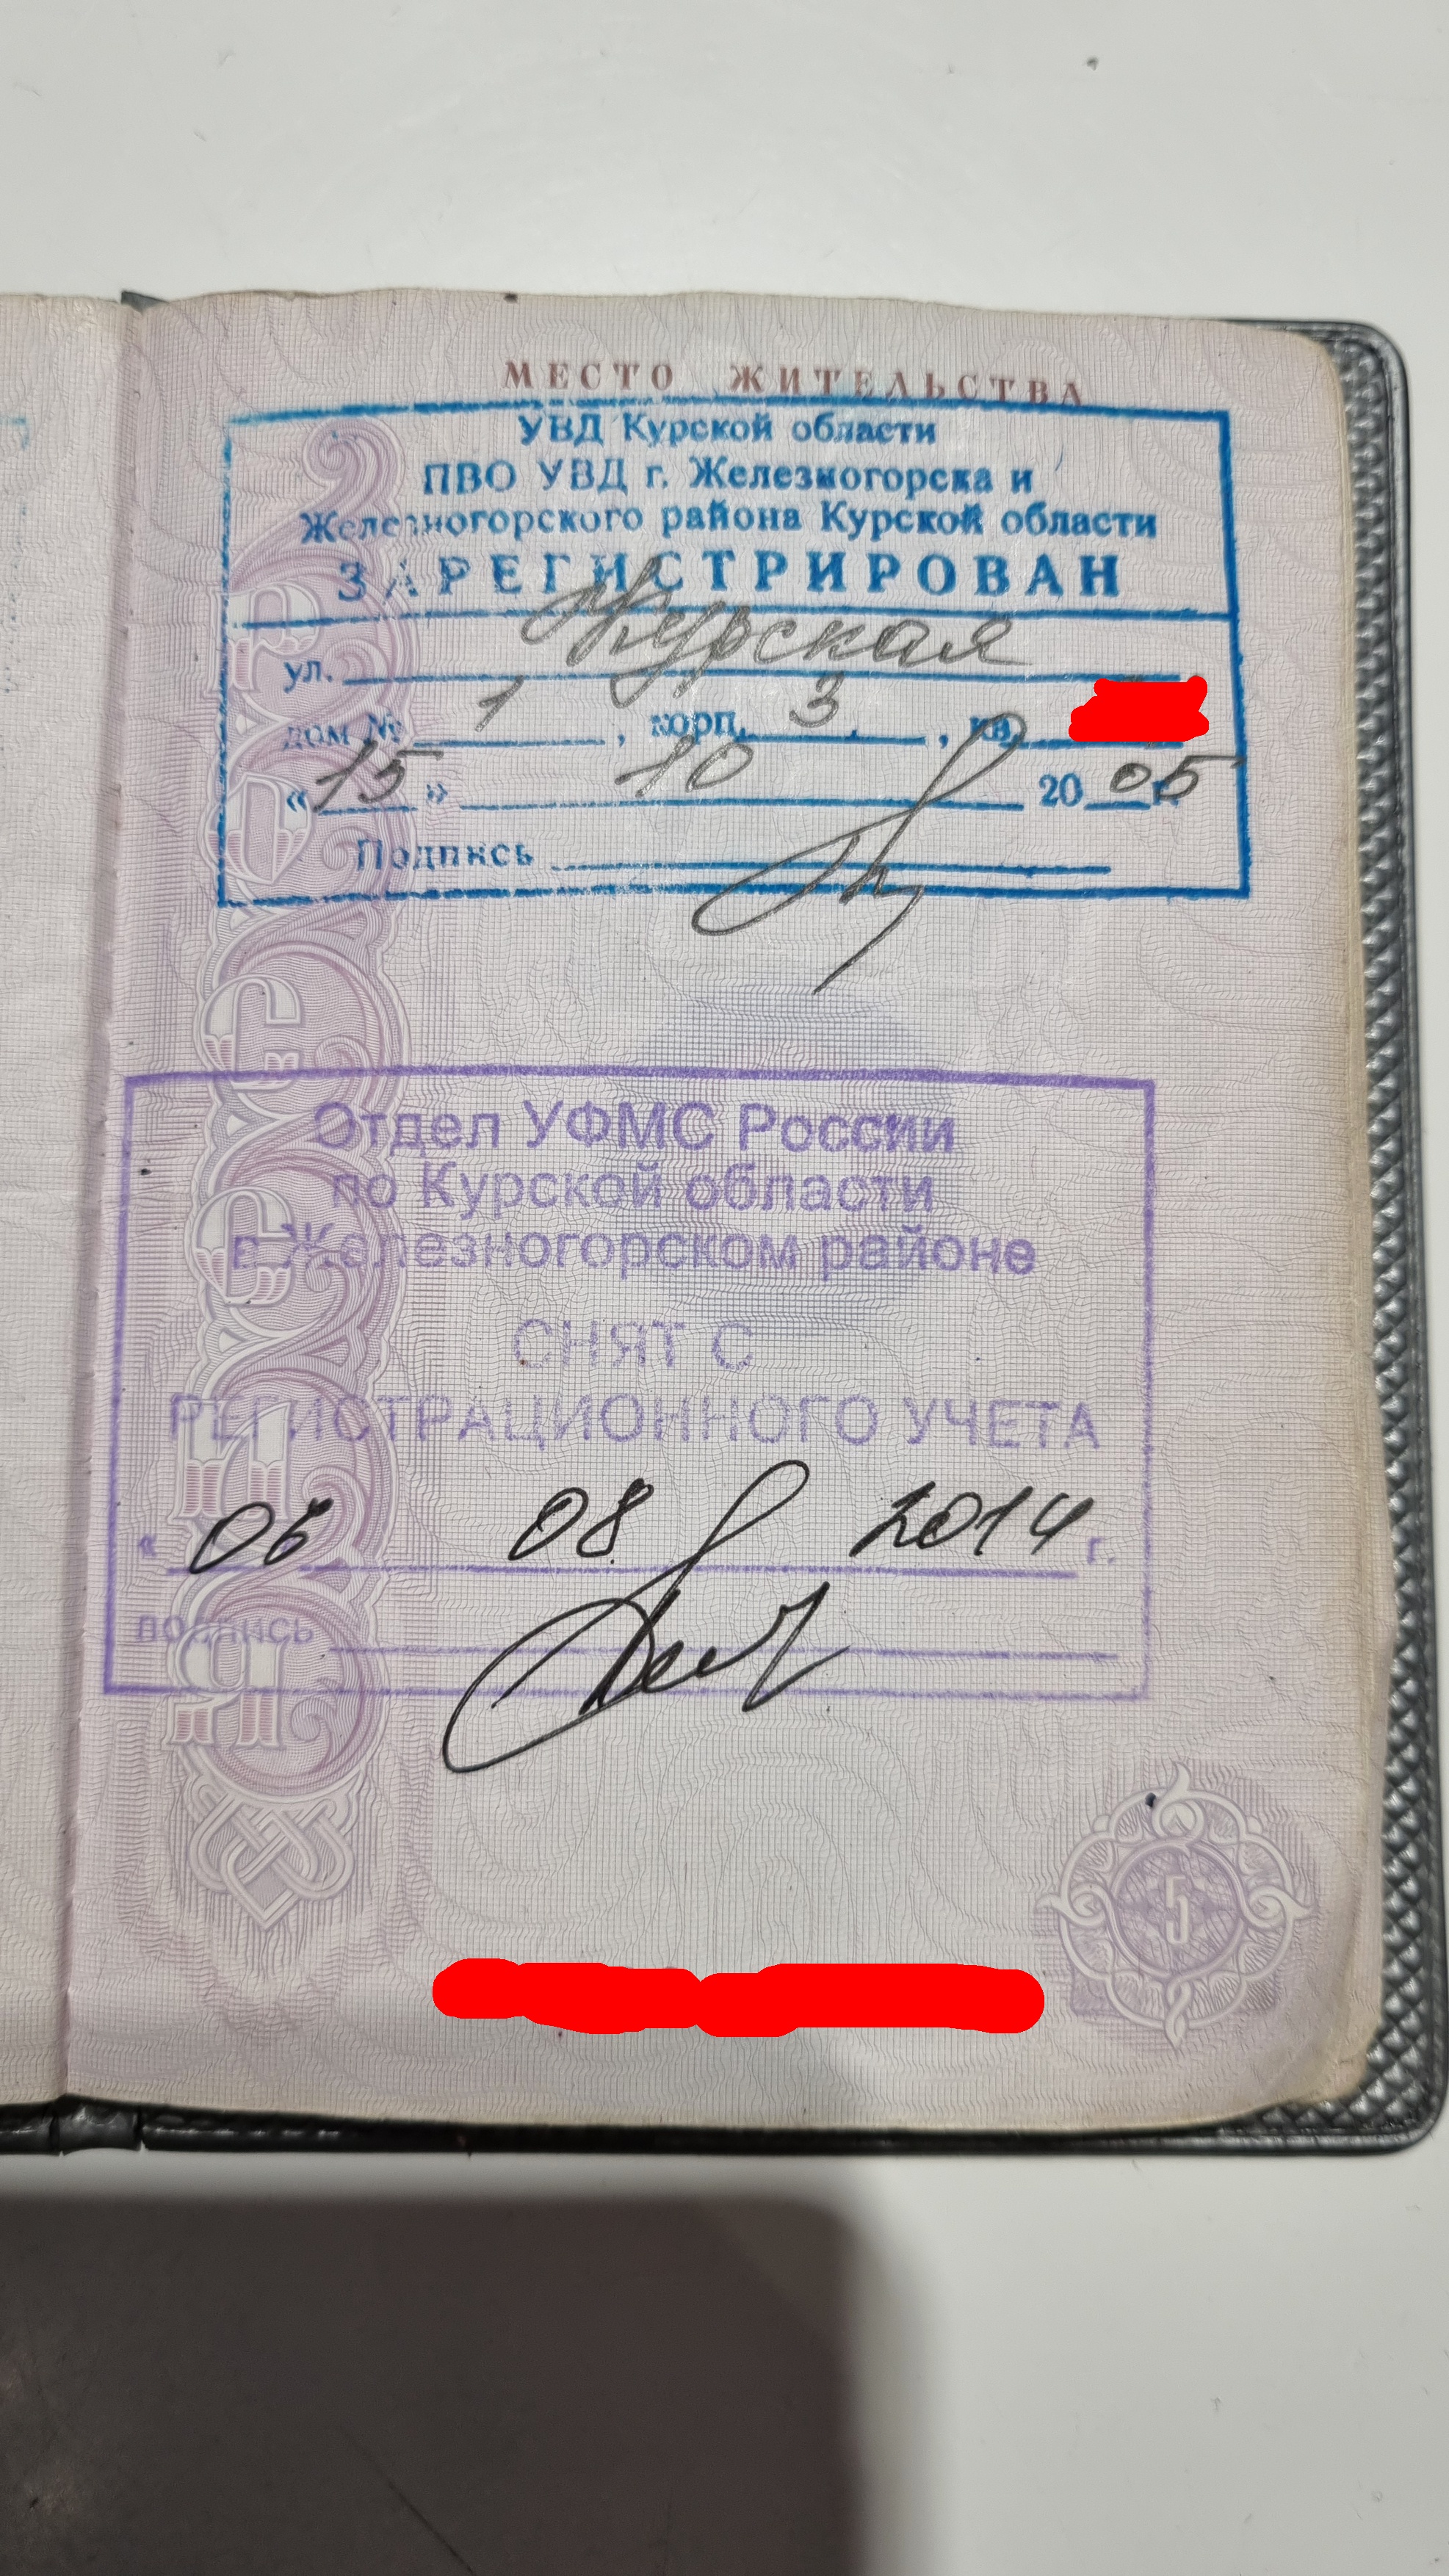 МЕСТО ЖИТЕЛЬСТВА
УВД Курской области
ПВО УВД г. Железногорска и
Железногорского района Курской области
ЗАРЕГИСТРИРОВАН
ул. Курская
дом № 1, корп. 3, кв.
«15» 10 2005 г.
Подпись
Отдел УФМС России
по Курской области
в Железногорском районе
СНЯТ С
РЕГИСТРАЦИОННОГО УЧЕТА
« 06 08 2014 г.
подпись
РОССИЯ
5